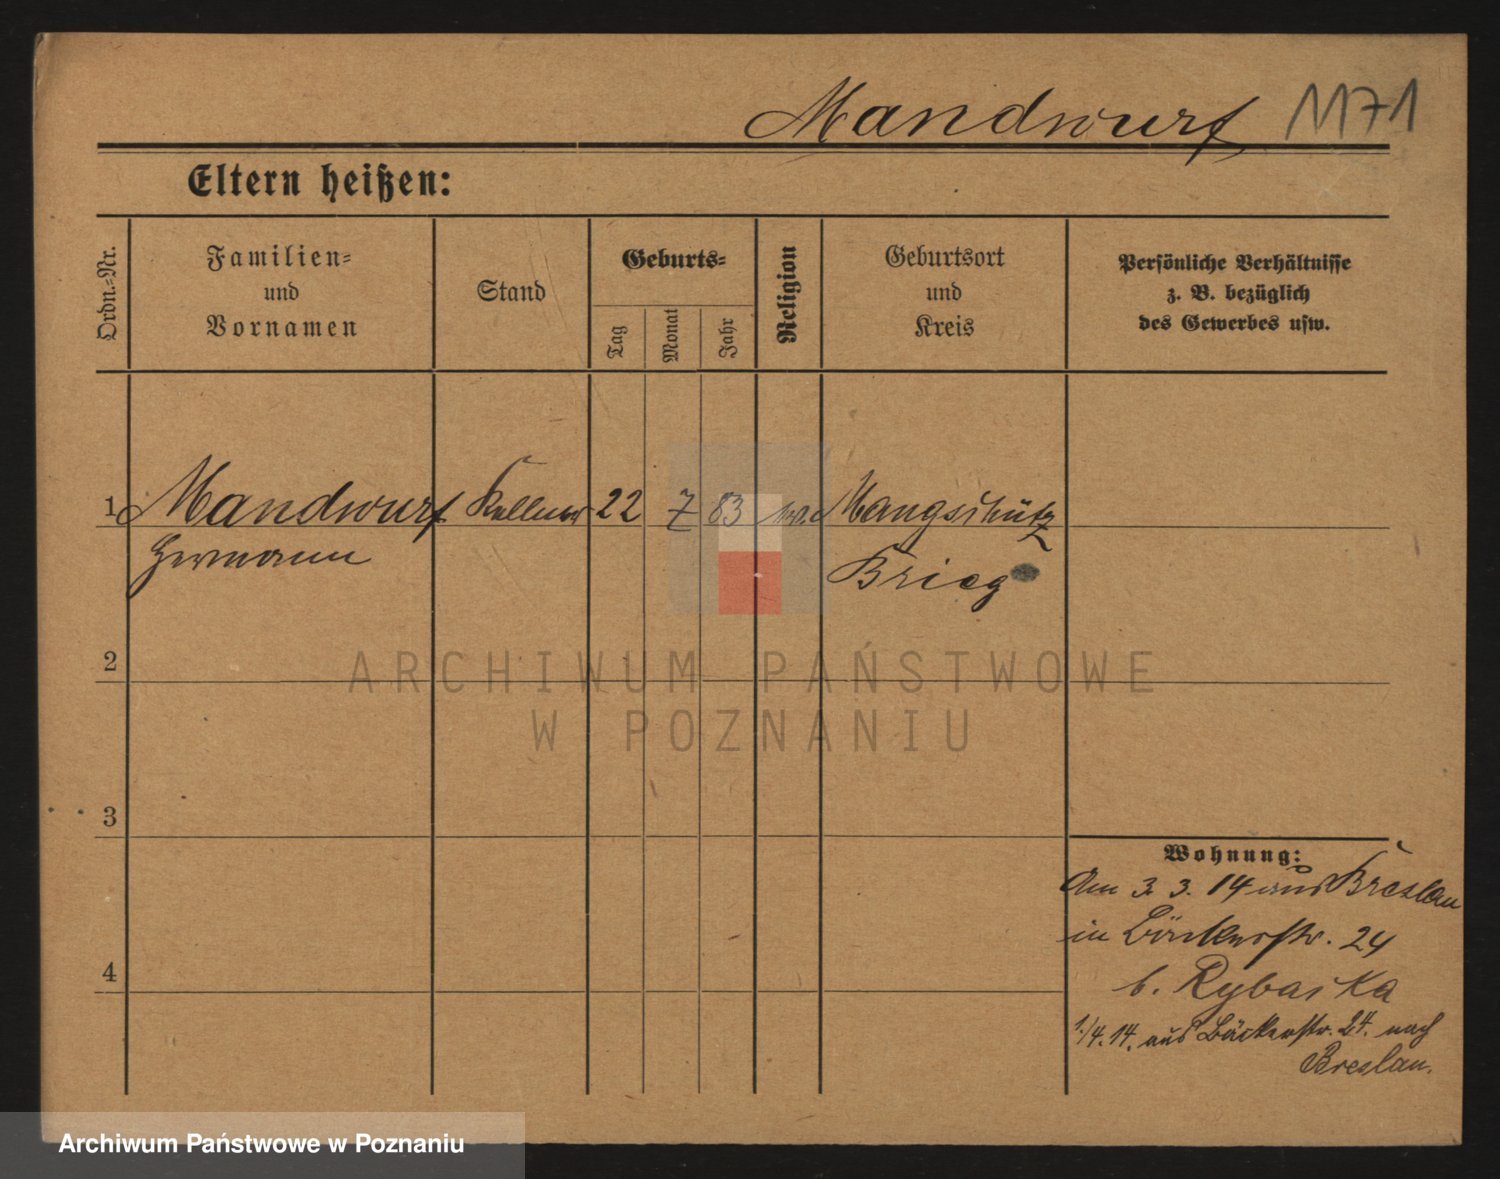 Mandwurf 1171
Eltern heißen:
Ordn.-Nr.
Familien-
und
Vornamen
Stand
Geburts-
Tag
Monat
Jahr
Religion
Geburtsort
und
Kreis
Persönliche Verhältnisse
z. B. bezüglich
des Gewerbes usw.
1 Mandwurf Kellner 22 7 83 Mangschütz
Hermann Brieg
2
3
4
Wohnung:
Am 3. 3. 14 aus Breslau
in Bäckerstr. 24
b. Rybaska
1./4. 14. aus Bäckerstr. 24. nach
Breslau.
ARCHIWUM PAŃSTWOWE
W POZNANIU
Archiwum Państwowe w Poznaniu